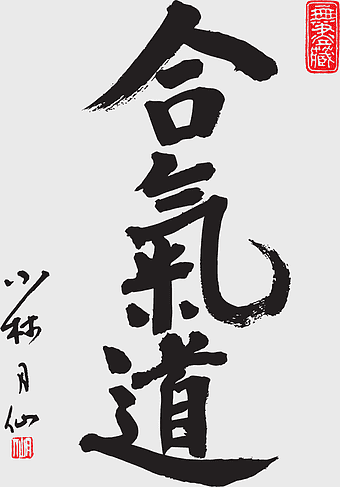 合氣道
小林月仙